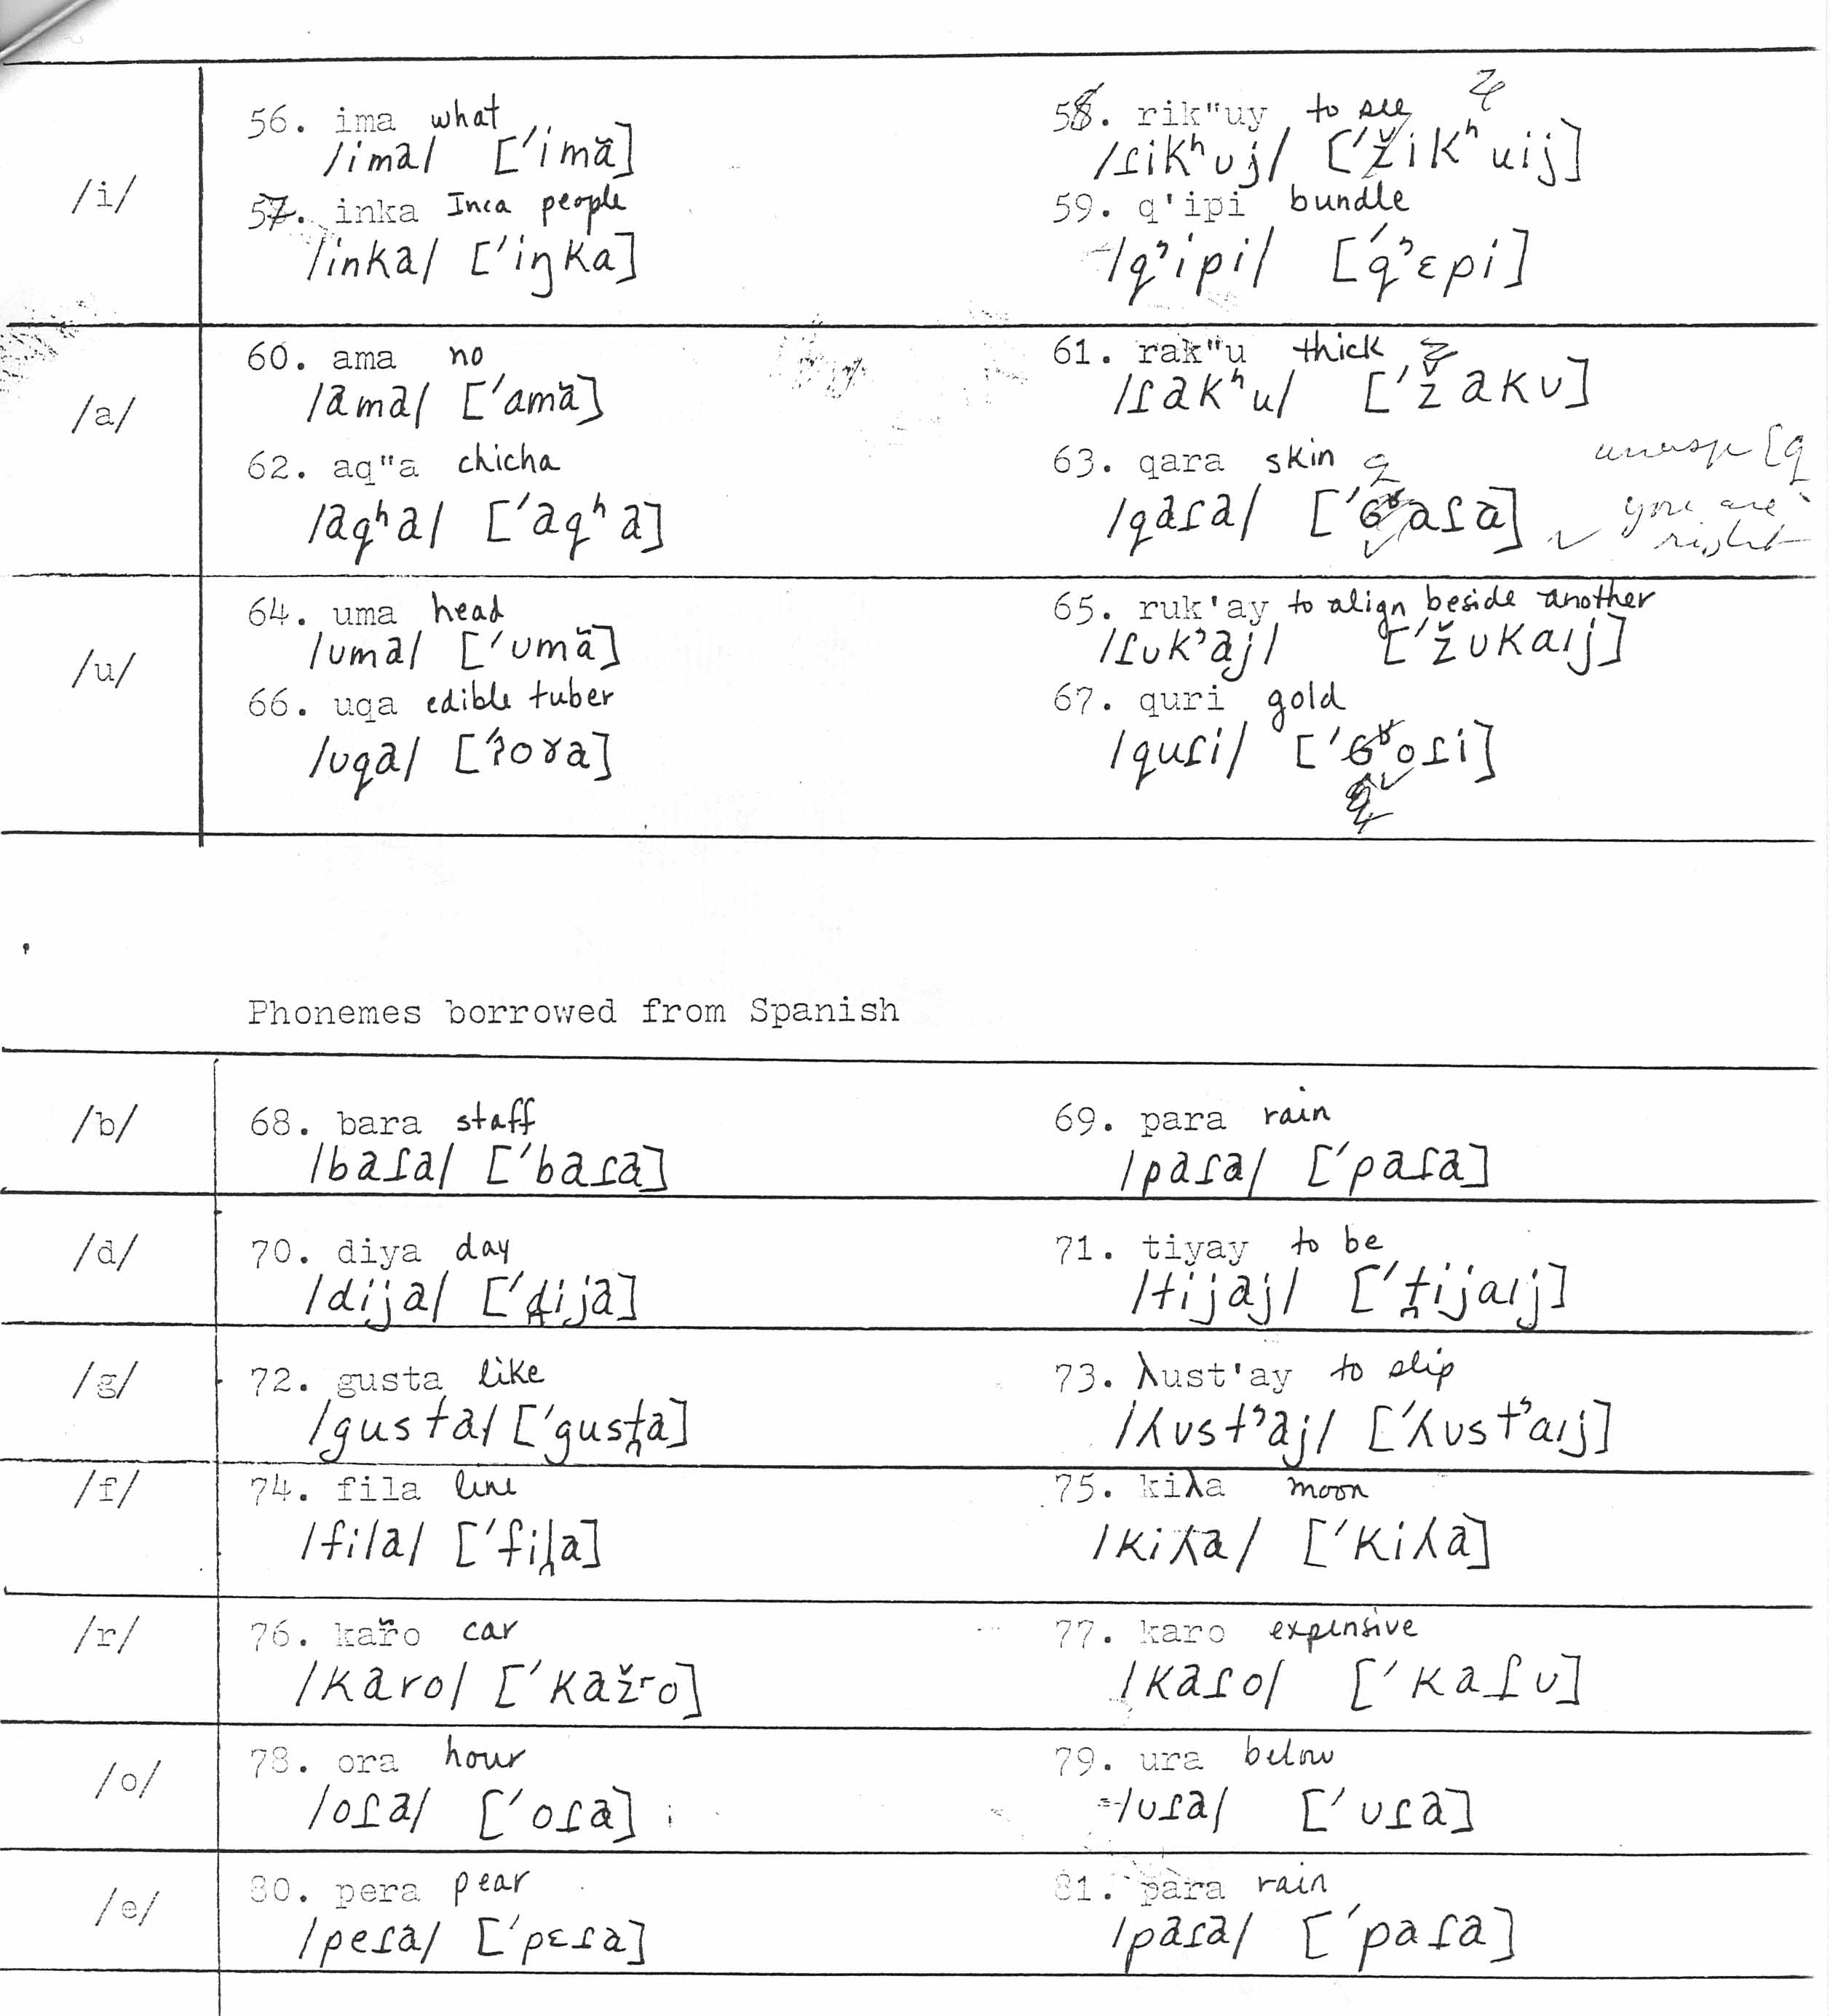 /i/
56. ima what
/ima/ ['imă]
57. inka Inca people
/inka/ ['iŋka]
58. rik"uy to see
/ɾikʰuj/ ['žikʰuij]
59. q'ipi bundle
/qʼipi/ ['qʼɛpi]
/a/
60. ama no
/ama/ ['amă]
61. rak"u thick
/ɾakʰu/ ['žakʊ]
62. aq"a chicha
/aqʰa/ ['aqʰa]
63. qara skin q
/qaɾa/ ['ɢʶaɾa]
you are
right
/u/
64. uma head
/uma/ ['umă]
65. ruk'ay to align beside another
/ɾukʼaj/ ['žukaɪj]
66. uqa edible tuber
/uqa/ ['ʔoɤa]
67. quri gold
/quɾi/ ['ɢʶoɾi]
Phonemes borrowed from Spanish
/b/
68. bara staff
/baɾa/ ['baɾa]
69. para rain
/paɾa/ ['paɾa]
/d/
70. diya day
/dija/ ['d̪ija]
71. tiyay to be
/tijaj/ ['t̪ijaɪj]
/g/
72. gusta like
/gusta/ ['gust̪a]
73. λust'ay to slip
/ʎustʼaj/ ['ʎustʼaɪj]
/f/
74. fila line
/fila/ ['fil̪a]
75. kiλa moon
/kiʎa/ ['kiʎa]
/r/
76. kar̃o car
/karo/ ['kažʳo]
77. karo expensive
/kaɾo/ ['kaɾʊ]
/o/
78. ora hour
/oɾa/ ['oɾa]
79. ura below
/uɾa/ ['ʊɾa]
/e/
80. pera pear
/peɾa/ ['pɛɾa]
81. para rain
/paɾa/ ['paɾa]